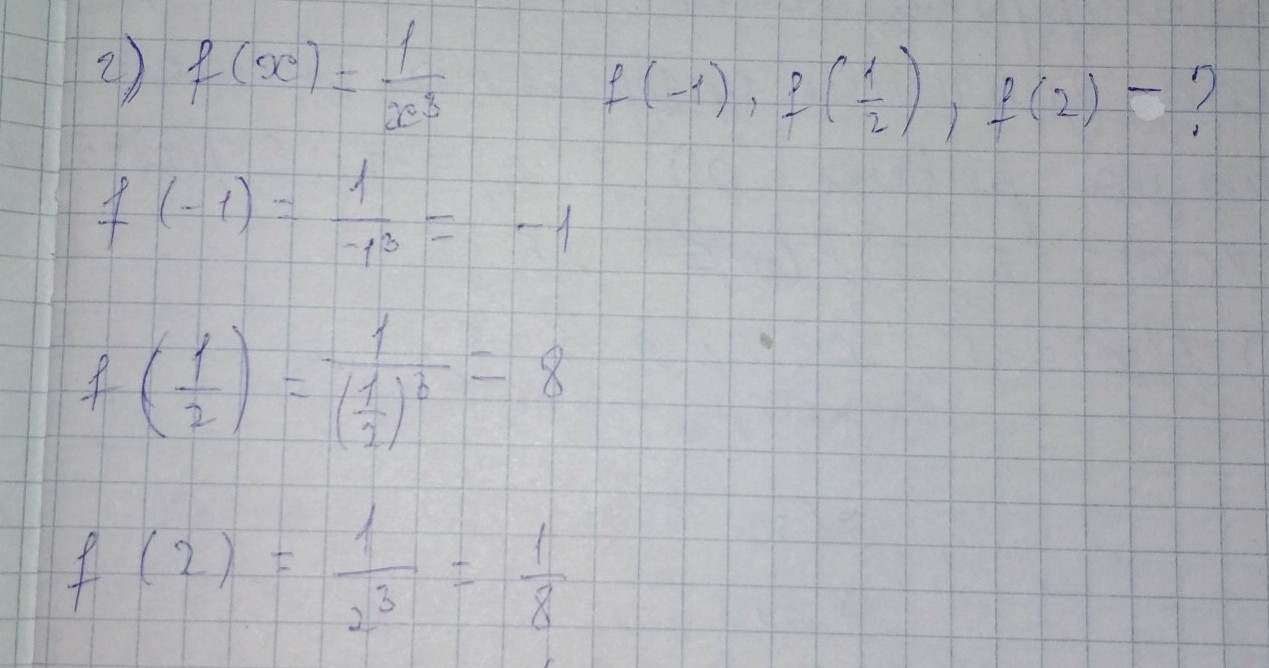 г) f(x) = 1/x³ f(-1), f(1/2), f(2) - ?
f(-1) = 1/-1³ = -1
f(1/2) = 1/(1/2)³ = 8
f(2) = 1/2³ = 1/8